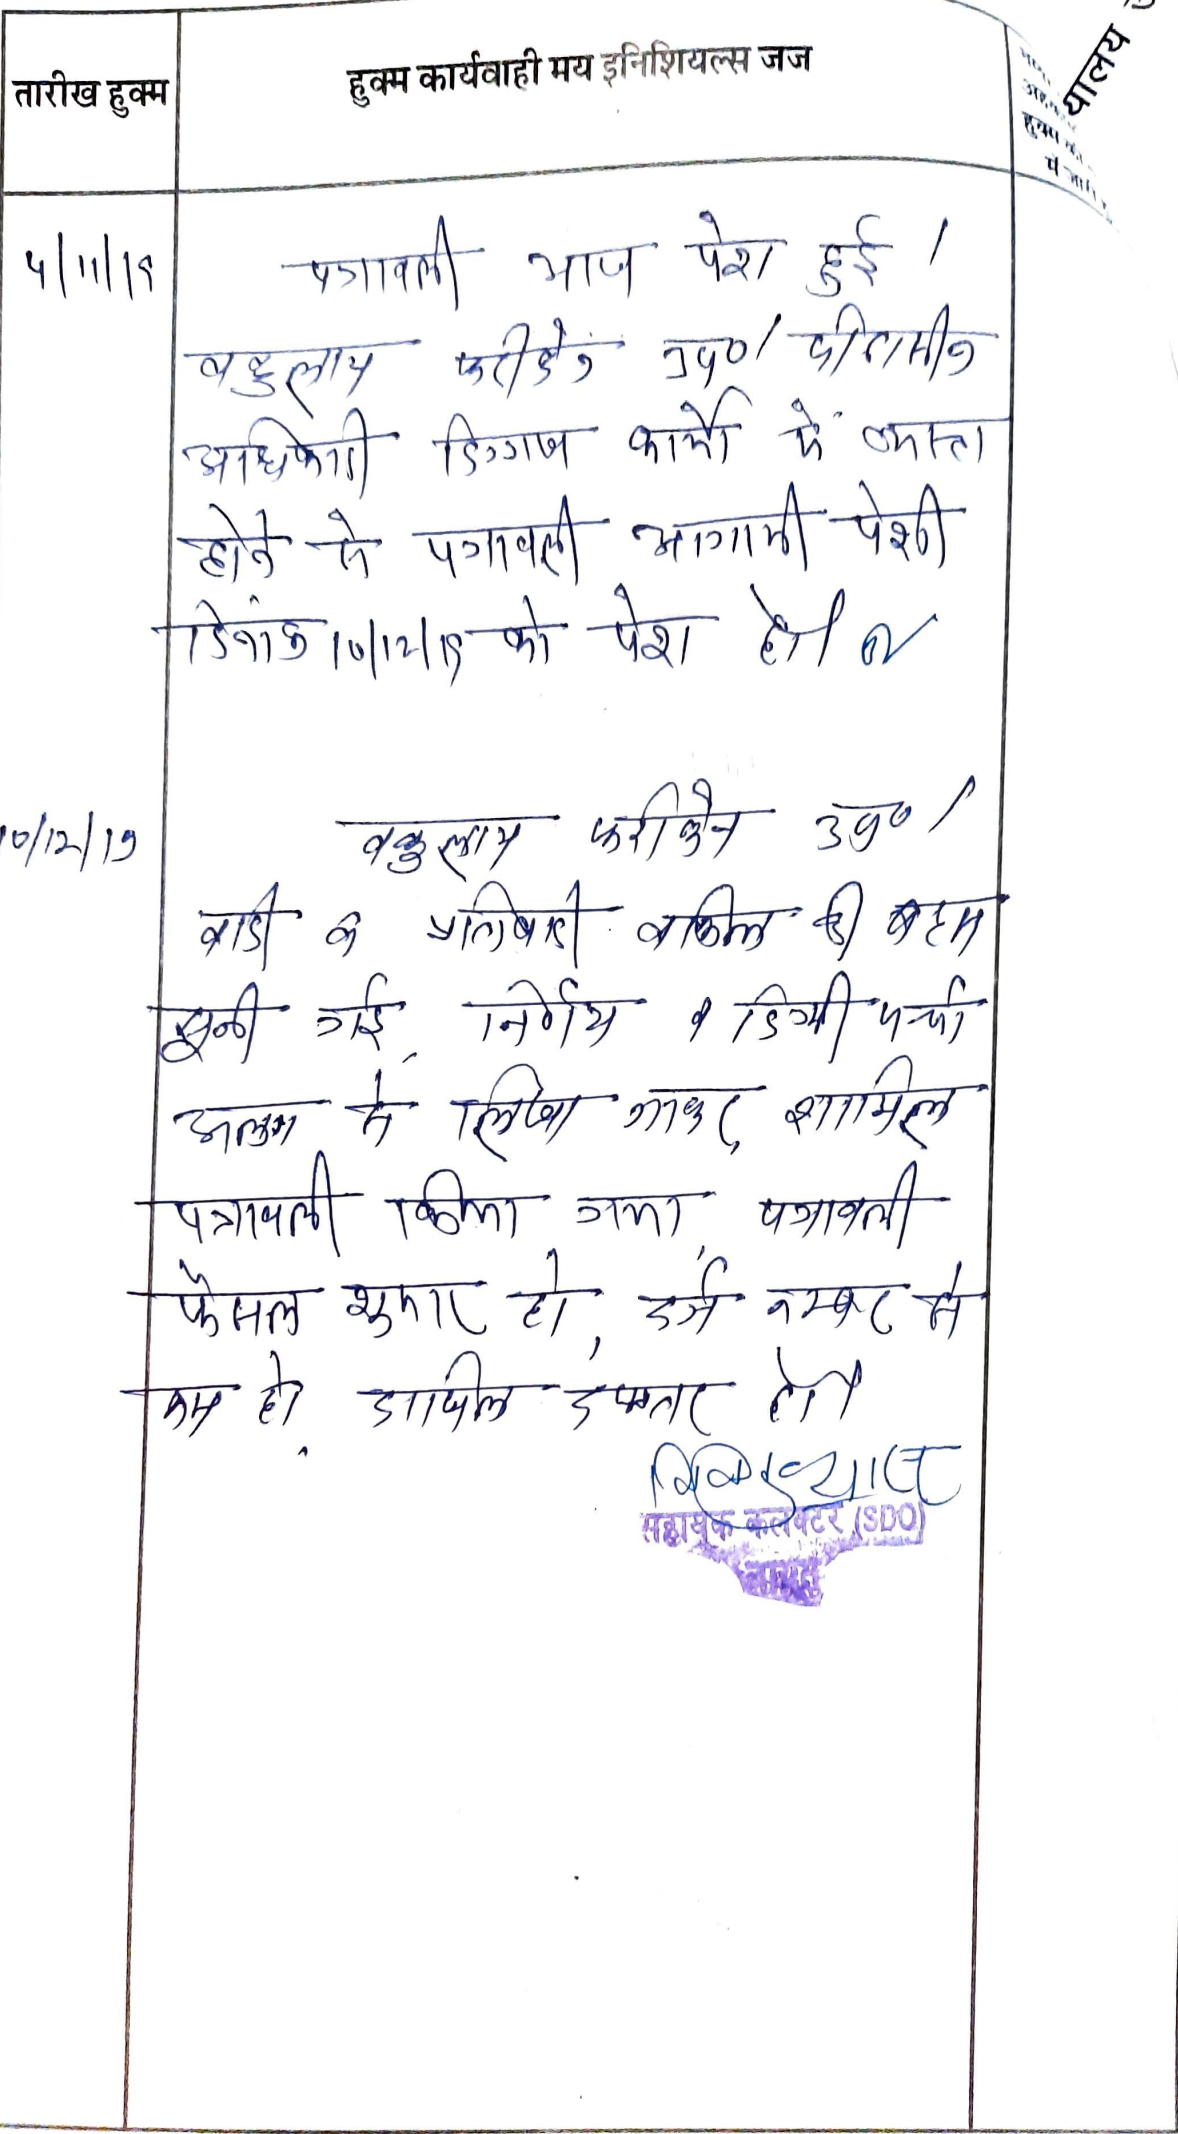 तारीख हुक्म
हुक्म कार्यवाही मय इनिशियल्स जज
यालय
हुक्म
में
5/11/19
पत्रावली आज पेश हुई।
वकुलाय फरीकेन उप०। पीठासीन
अधिकारी दिगर कार्यो में व्यस्त
होने से पत्रावली आगामी पेशी
दिनांक 10/12/19 को पेश हो।
10/12/19
वकुलाय फरीकैन उप०।
वादी व प्रतिवादी वकील की बहस
सुनी गई, निर्णय व डिग्री पर्चा
अलग से लिखा जाकर, शामिल
पत्रावली किया गया, पत्रावली
फैसल शुमार हो, दर्ज नम्बर से
कम हो, दाखिल दफ्तर हो।
सहायक कलक्टर (SDO)